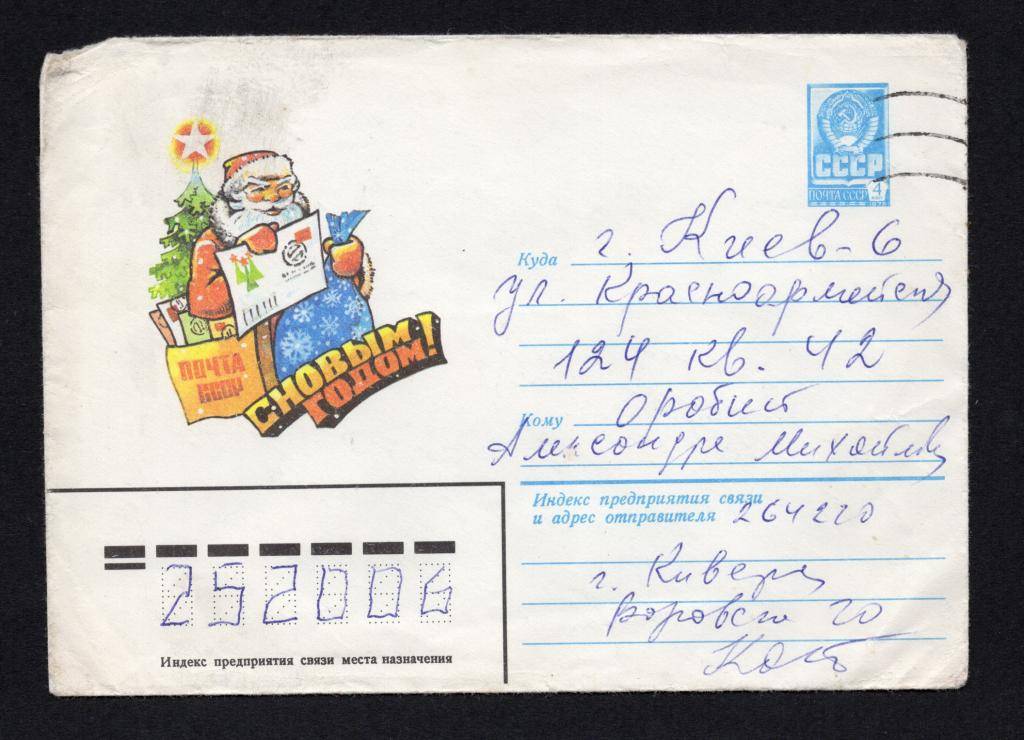 СССР
ПОЧТА СССР 4
ПОЧТА
СССР
С НОВЫМ
ГОДОМ!
Куда г. Киев-6
ул. Красноармейская
124 кв. 42
Кому Оробий
Александре Михайл
Индекс предприятия связи
и адрес отправителя 264220
г. Киверцы
Воровского 20
Кот
252006
Индекс предприятия связи места назначения